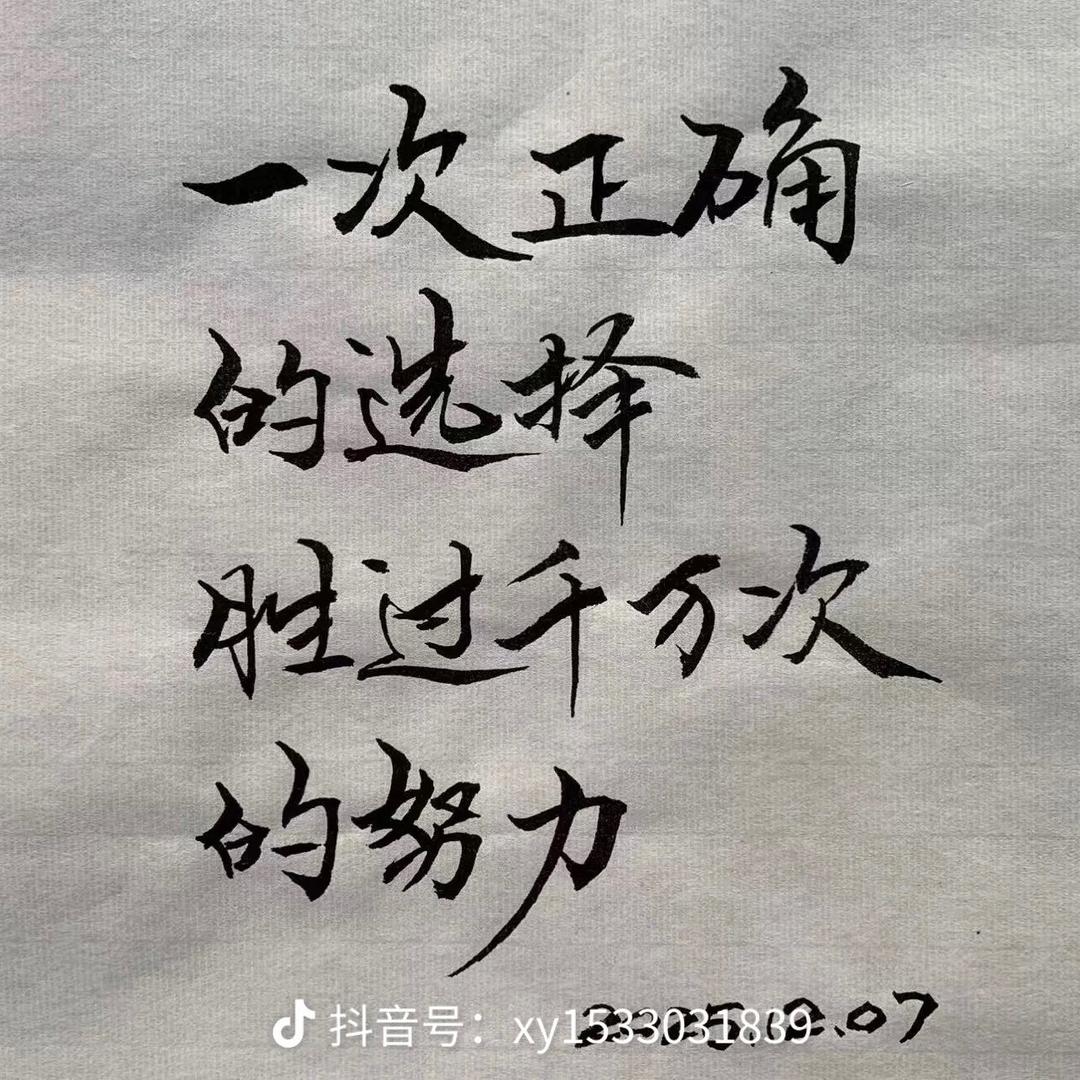 一次正确
的选择
胜过千万次
的努力
抖音号：xy1533031839